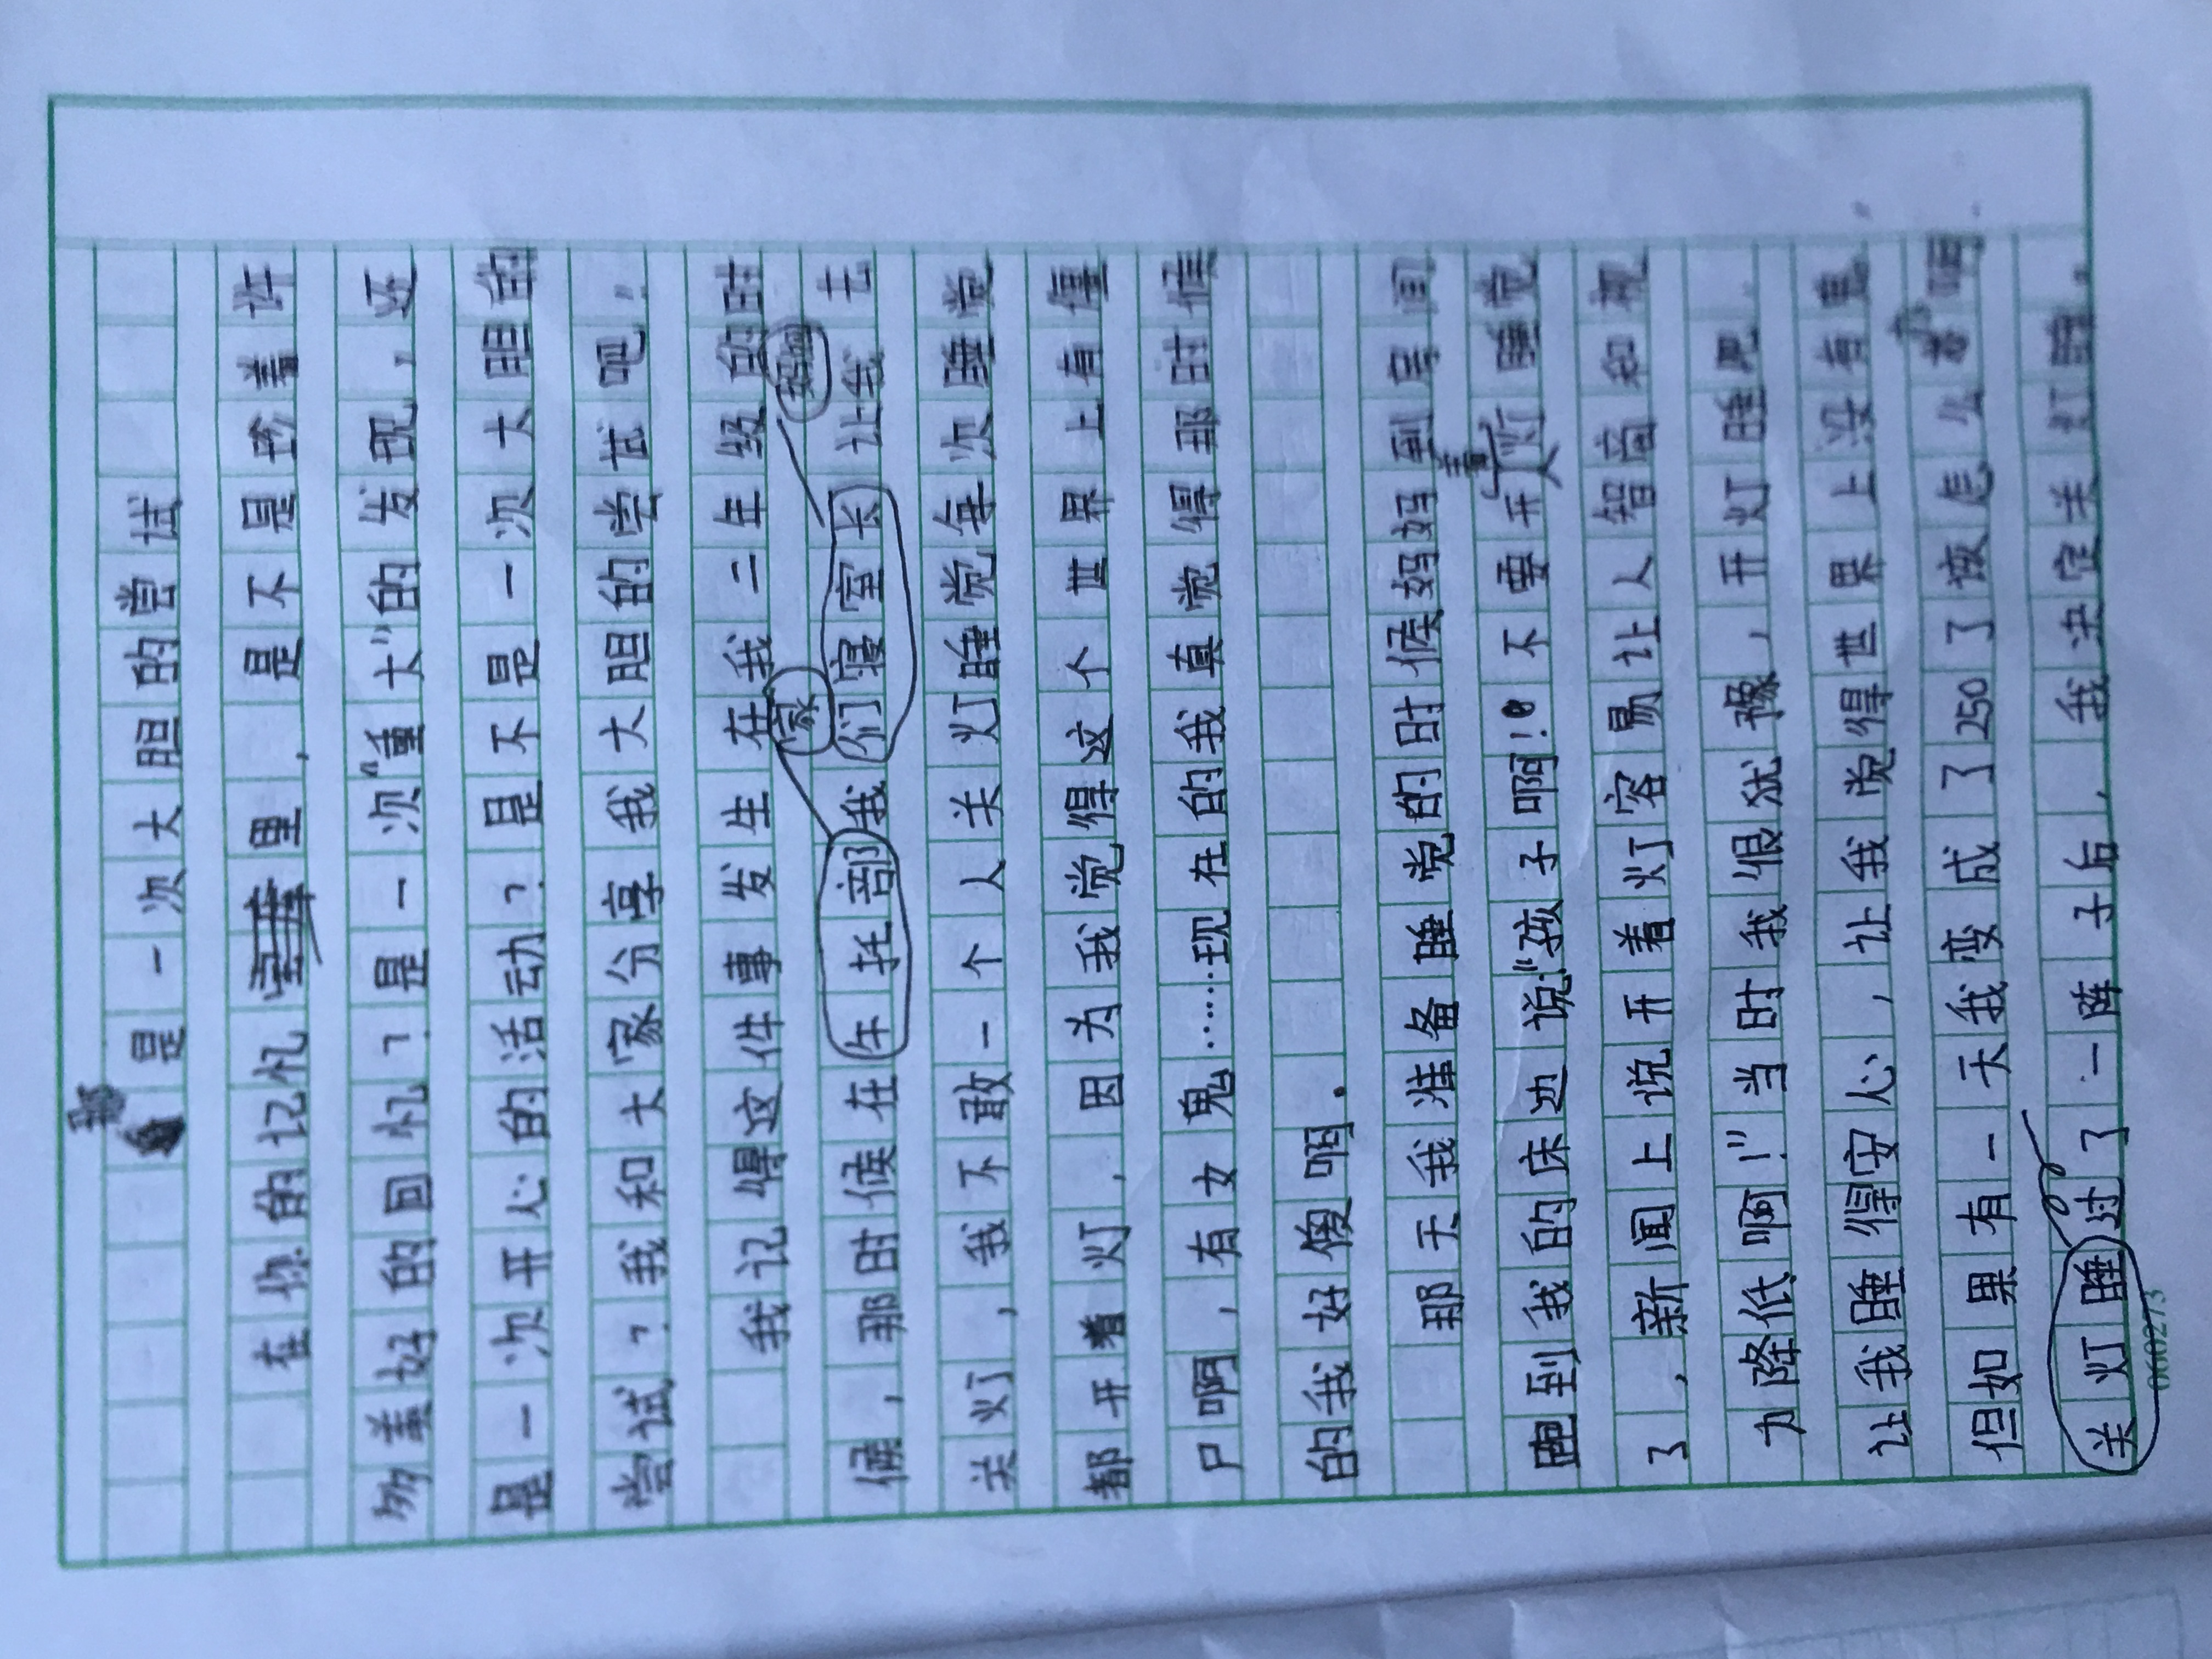 那是一次大胆的尝试
在你的记忆里，是不是珍差许
多美好的回忆？是一次“重大”的发现，还
是一次开心的活动？是不是一次大胆的
尝试？我和大家分享我大胆的尝试吧，
我记得这件事发生在我二年级的时
家 妈妈
候，那时候在午托部我们寝室长让我去
关灯，我不敢一个人关灯睡觉每次睡觉
都开着灯，因为我觉得这个世界上有僵
尸啊，有女鬼……现在的我真觉得那时候
的我好傻啊。
那天我准备睡觉的时候妈妈到房间
跑到我的床边说：“孩子啊！不要开灯睡觉
了，新闻上说开着灯容易让人智商和视
力降低啊！”当时我很犹豫，开灯睡吧
让我睡得安心，让我觉得世界上没有鬼，
但如果有一天我变成了250了该怎么办啊
关灯睡过了一阵子后，我决定关灯睡。
060273